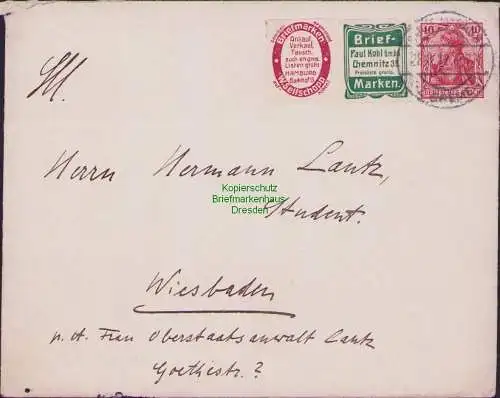 Briefmarken
Ankauf,
Verkauf,
Tausch,
auch en gros.
Listen gratis
HAMBURG
Brief-
Paul Kohl G.m.b.H.
Chemnitz 33.
Preisliste gratis.
Marken.
10 10
Herrn Hermann Lautz,
Student.
Kopierschutz
Briefmarkenhaus
Dresden
Wiesbaden
Frau Oberstaatsanwalt Lautz
Goethestr. ?